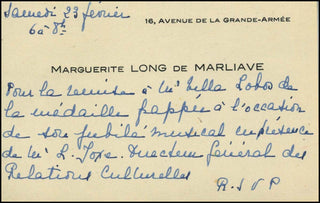 Samedi 23 février
6 à 8h
16, AVENUE DE LA GRANDE-ARMÉE
MARGUERITE LONG DE MARLIAVE
Pour la remise à Mr Villa Lobos de
la médaille frappée à l'occasion
de son jubilé musical en présence
de Mr L. Joxe. Directeur Général des
Relations Culturelles
R.S.V.P